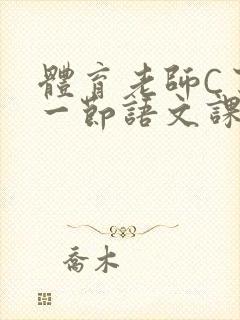 體育老師C
一節語文課
喬木